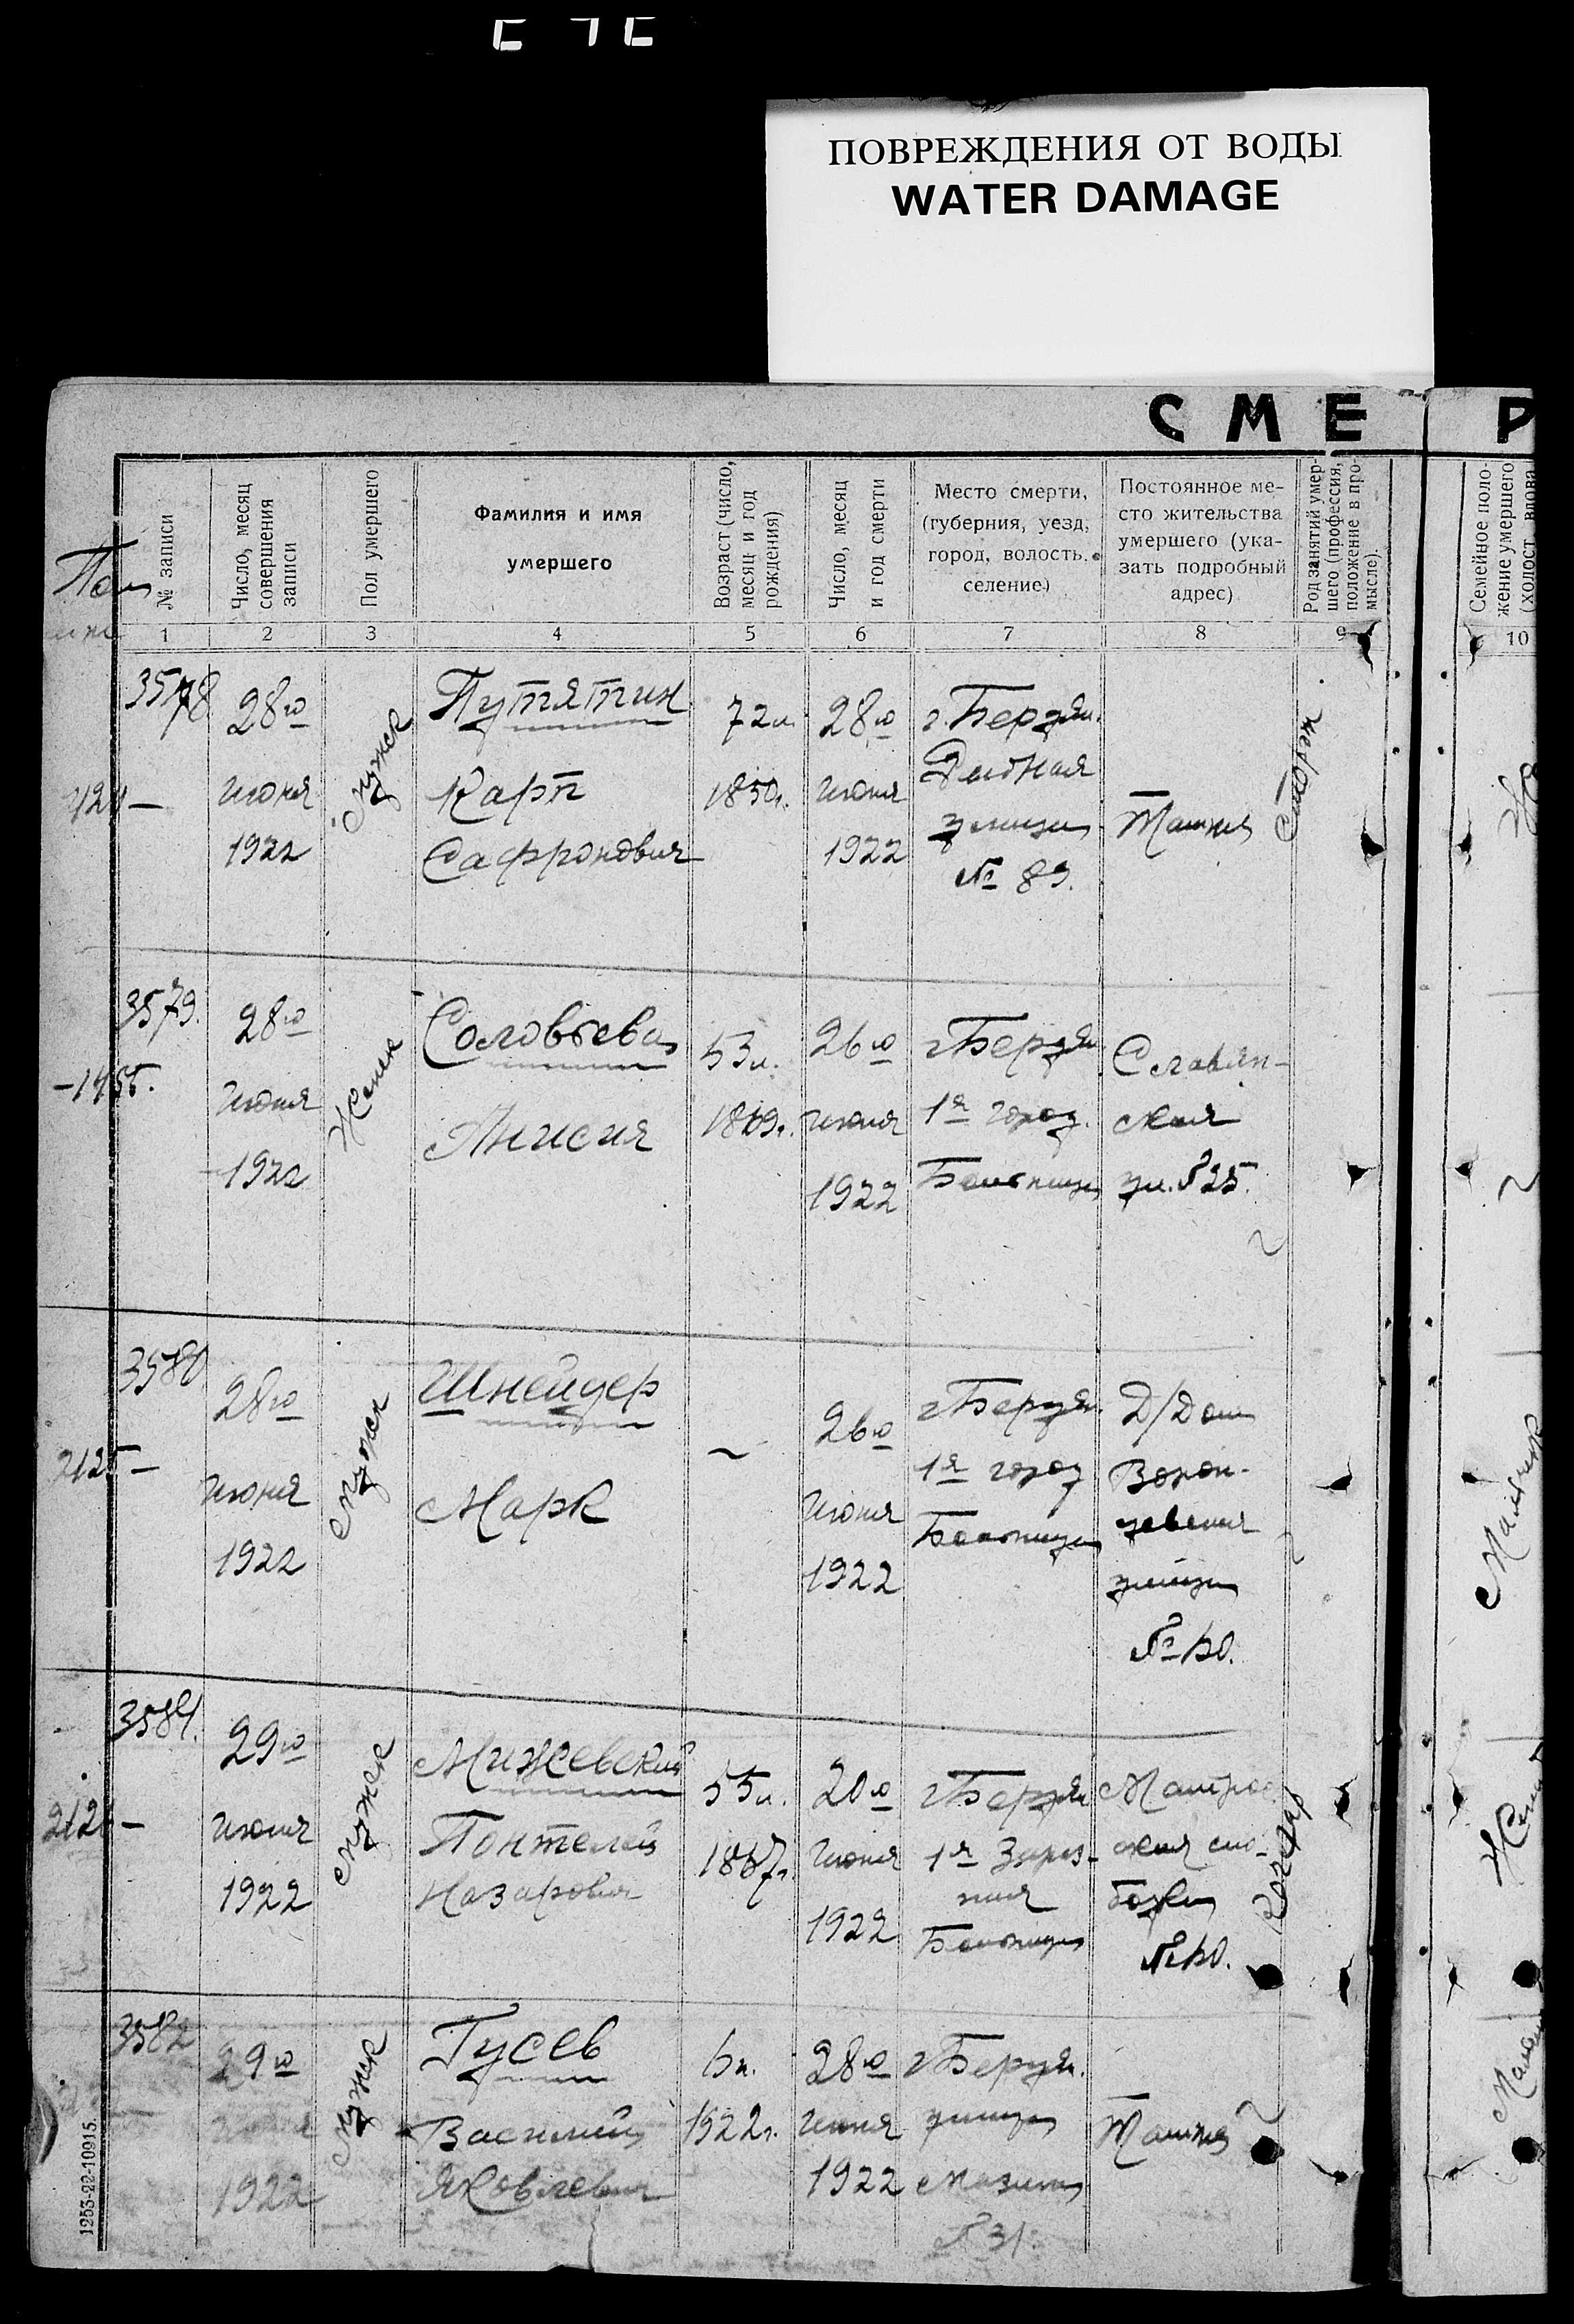 ПОВРЕЖДЕНИЯ ОТ ВОДЫ
WATER DAMAGE
СМЕ Р
№ записи
Число, месяц
совершения
записи
Пол умершего
Фамилия и имя
умершего
Возраст (число,
месяц и год
рождения)
Число, месяц
и год смерти
Место смерти,
(губерния, уезд,
город, волость,
селение)
Постоянное ме-
сто жительства
умершего (ука-
зать подробный
адрес)
Род занятий умер-
шего (профессия,
положение в про-
мысле).
Семейное поло-
жение умершего
(холост, вдова
1 2 3 4 5 6 7 8 9 10
3578
28го
июня
1922
Мужск
Путятин
Карп
Сафронович
72л.
1850г.
28го
июня
1922
г. Бердян.
улица
№ 89.
Там же
Сторож
3579.
28го
июня
1922
Женск
Соловьева
Анисия
53л.
1869г.
26го
июня
1922
г Бердян
1я город.
Больница
Славян-
ская
ул. № 25.
3580
28го
июня
1922
Мужск
Шнейдер
Марк
26го
июня
1922
г Бердян.
1я город
Больница
Д/Дом
Ворон-
цовская
улица
2125 —
Мальчик
3581.
29го
июня
1922
Мужск
Мижевский
Пантелей
Назарович
55л.
1867г.
20го
июня
1922
г Бердян
1я Зараз-
ная
Больница
Матрос
ская сло-
бодка
Кочегар
3582
29го
июня
1922
Мужск
Гусев
Василий
Яковлевич
1922г.
28го
июня
1922
г Бердян.
улица
№ 31.
Там же
1253-22-10915.